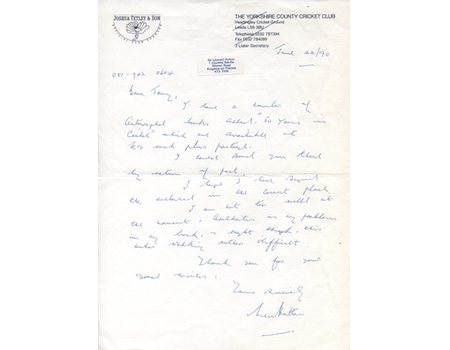 JOSHUA TETLEY & SON
THE YORKSHIRE COUNTY CRICKET CLUB
Headingley Cricket Ground
Leeds LS6 3BU
Telephone 0532 787394
Fax 0532 784099
J Lister Secretary
June 22/90
Sir Leonard Hutton
Kingston-on-Thames
081-942 0604
Dear
I have a number of
autographed books titled, "50 Years in
Cricket" which are available at
£10 each plus postage.
I could send you these
by return of post.
I hope I have signed
the enclosed in the correct place,
I am not too well at
the moment, Arthritis is my problem
in my back, & right thigh, this
makes walking rather difficult
Thank you for your
good wishes.
Yours sincerely
Len Hutton